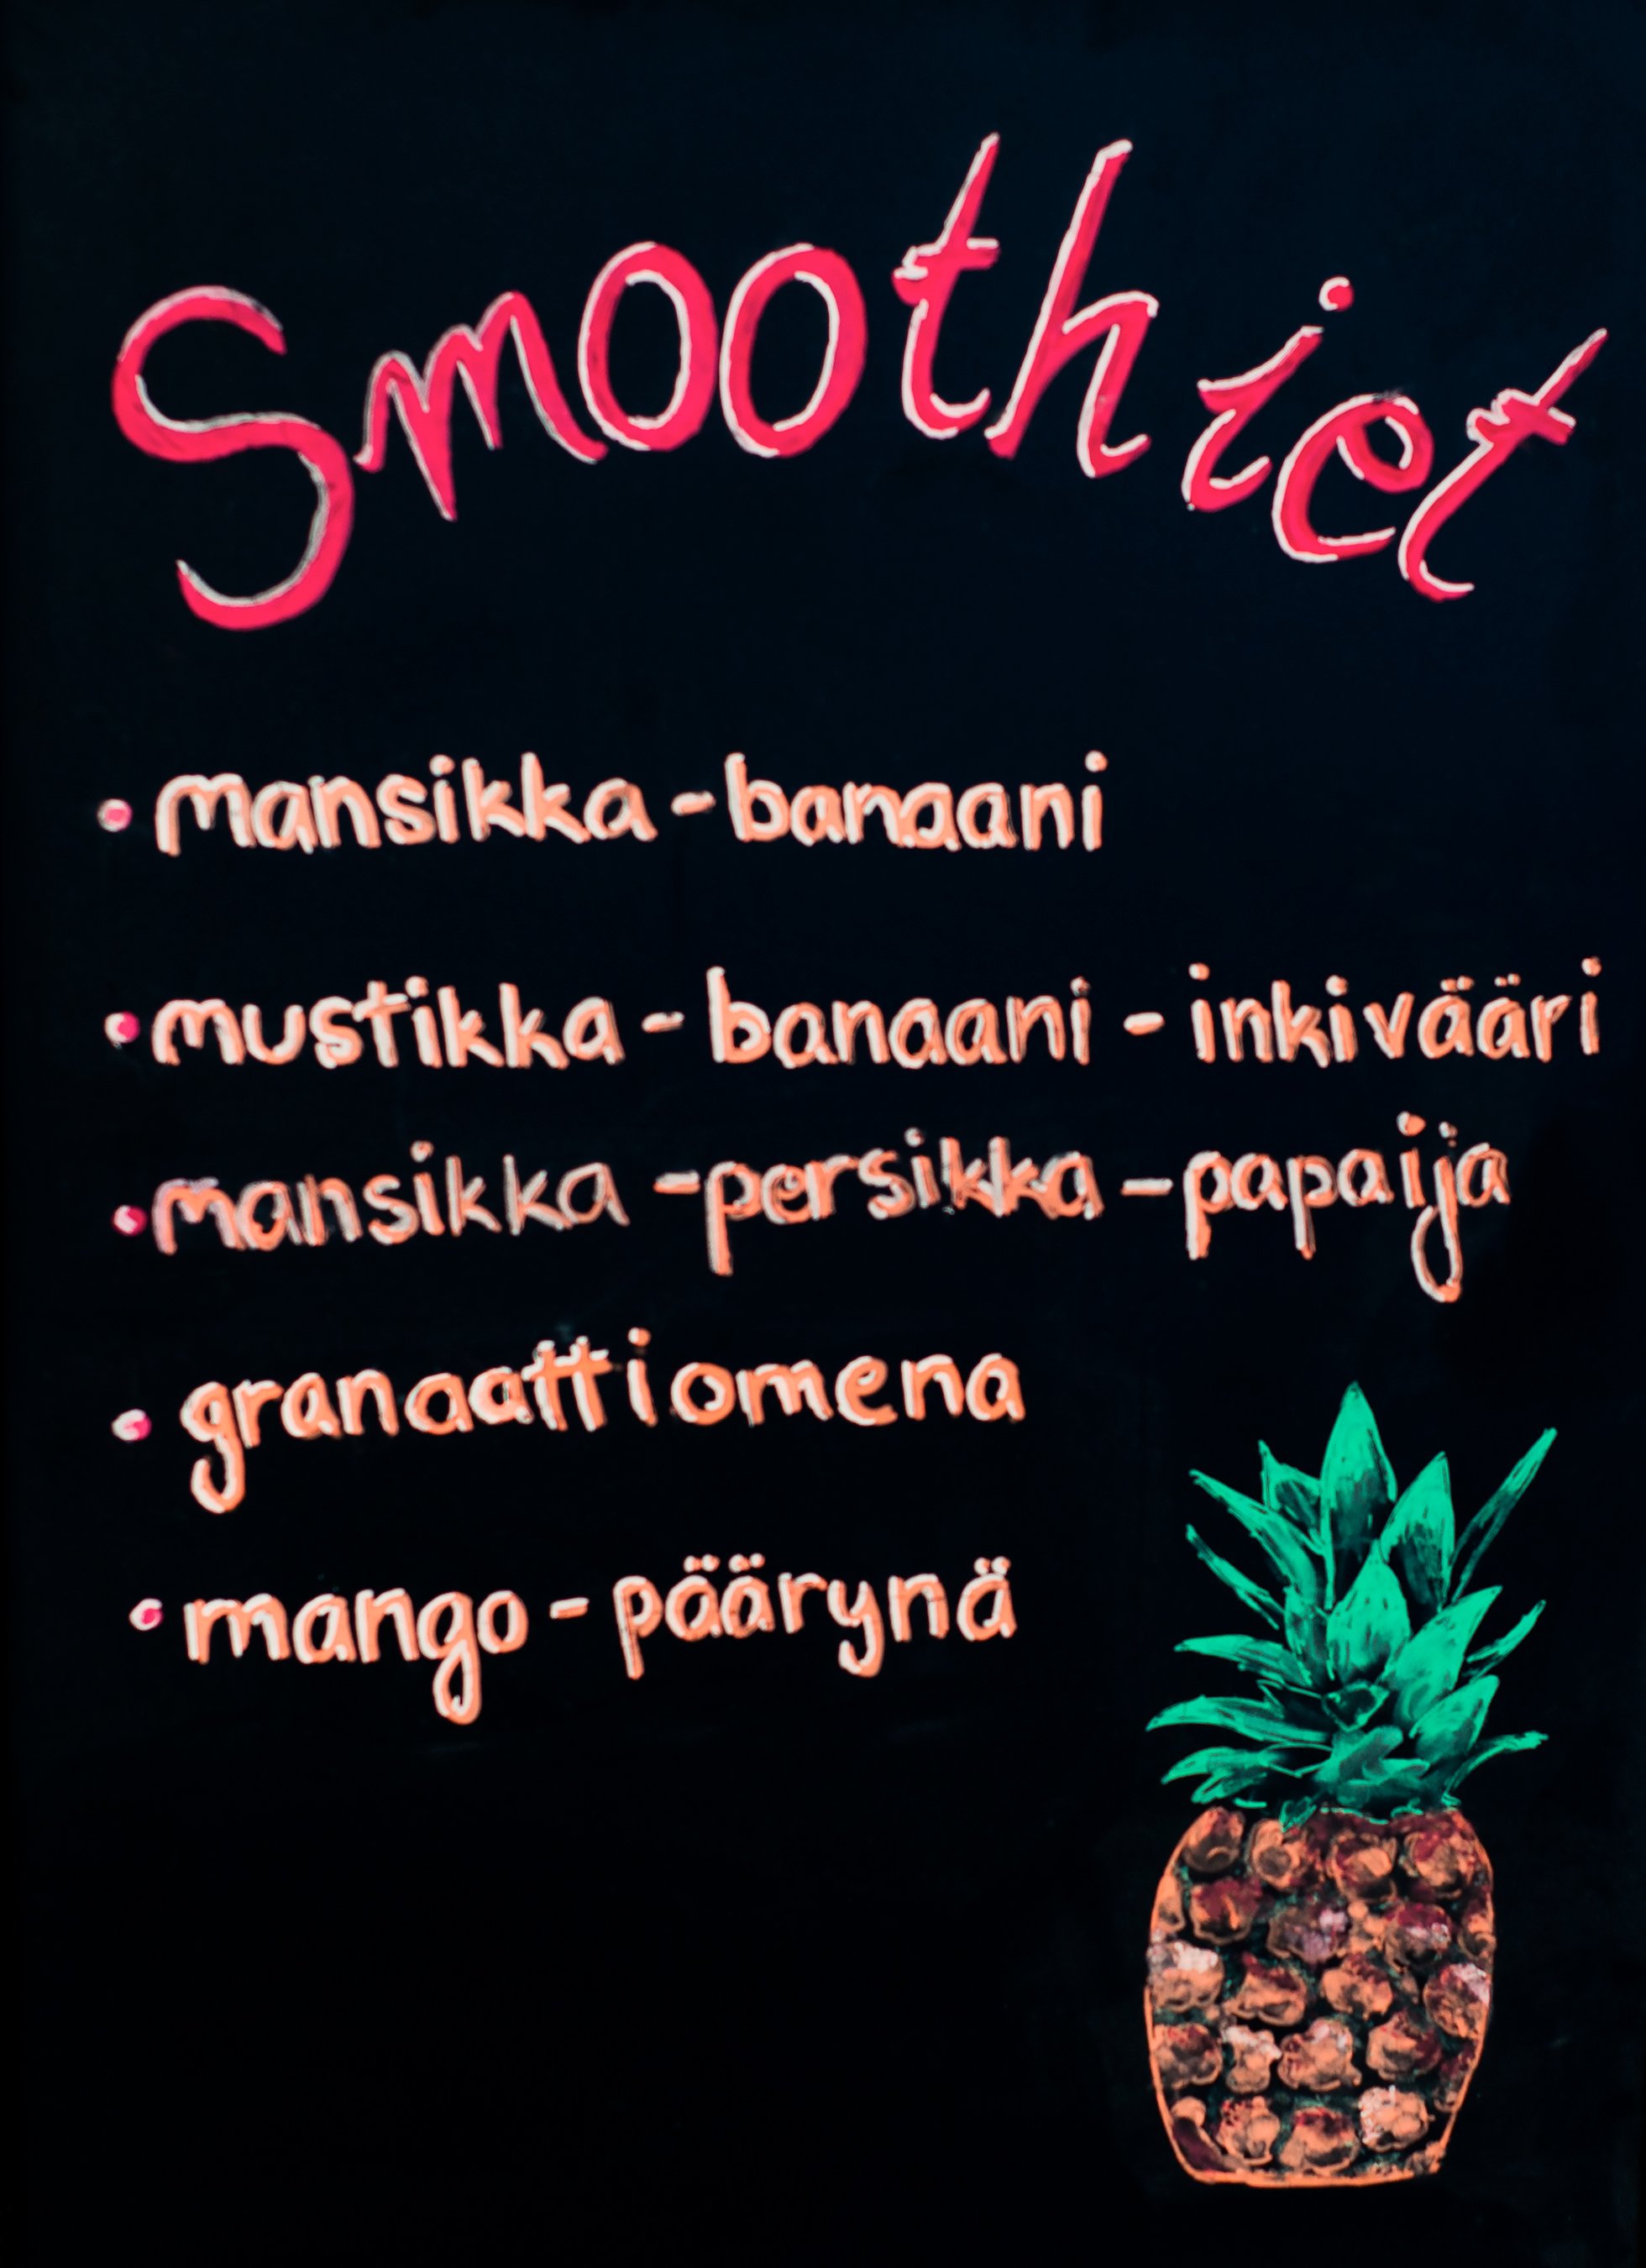 Smoothiet
• mansikka - banaani
• mustikka - banaani - inkivääri
• mansikka - persikka - papaija
• granaattiomena
• mango - päärynä